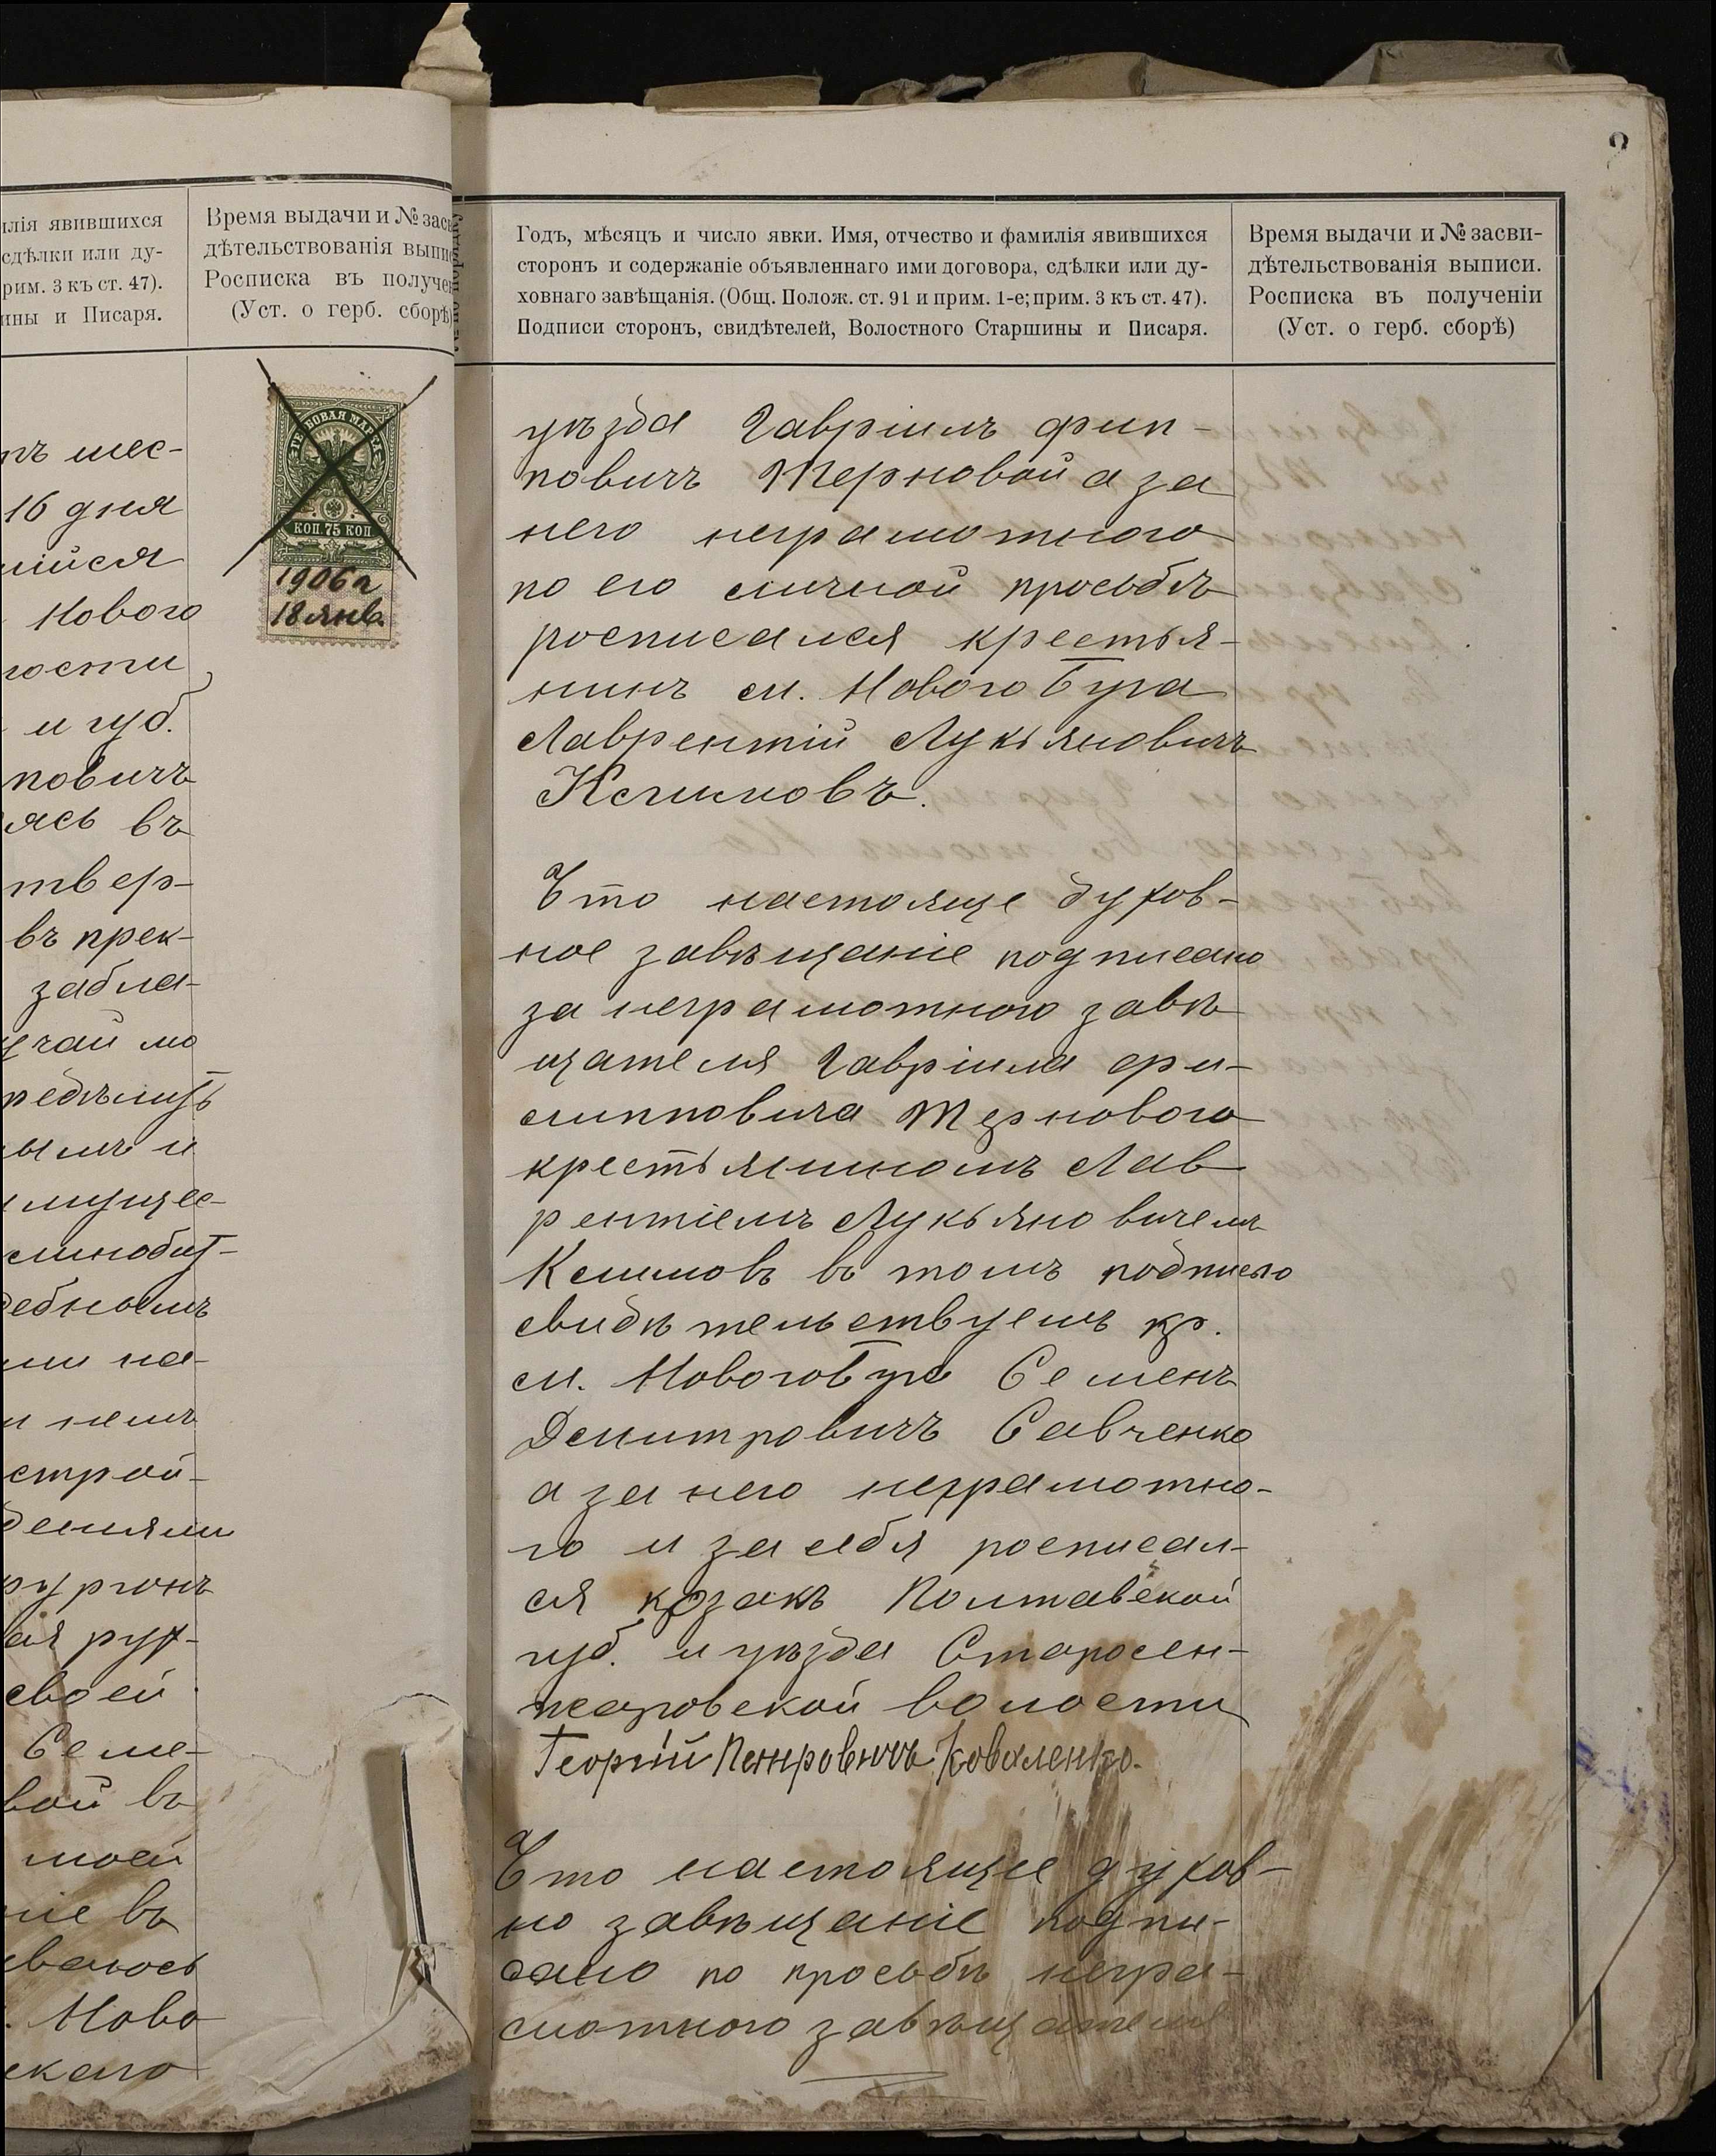 илія явившихся
сдѣлки или ду-
рим. 3 къ ст. 47).
ины и Писаря.
Время выдачи и № засв
дѣтельствованія выпи
Росписка въ получе
(Уст. о герб. сборѣ)
шес-
16 дня
шійся
Нового
ности
и губ.
повичъ
ясь въ
твер-
въ прек-
забла-
учаи мо
редѣлить
ымъ и
имущес-
ебнымъ
ми на-
и немъ
строй-
деніями
рургонъ
ая рух-
своей
Семе-
вой въ
моей
ніе въ
. Ново
скаго
ГЕРБОВАЯ МАРКА
КОП 75 КОП
1906 г
18 янв.
Годъ, мѣсяцъ и число явки. Имя, отчество и фамилія явившихся
сторонъ и содержаніе объявленнаго ими договора, сдѣлки или ду-
ховнаго завѣщанія. (Общ. Полож. ст. 91 и прим. 1-е; прим. 3 къ ст. 47).
Подписи сторонъ, свидѣтелей, Волостного Старшины и Писаря.
Время выдачи и № засви-
дѣтельствованія выписи.
Росписка въ полученіи
(Уст. о герб. сборѣ)
уѣзда Гавріилъ Фип-
повичъ Терновой а за
него неграмотного
по его личной просьбѣ
росписался крестья-
нинъ м. Нового Буга
Лаврентій Лукьяновичъ
Климовъ.
Что настояще духов-
ное завѣщаніе подписано
за неграмотного завѣ
щателя Гавріила Фи-
липповича Тернового
крестьяниномъ Лав
рентіемъ Лукьяновичемъ
Климовъ въ томъ подписью
свидѣтельствуемъ кр.
м. Нового Буга Семенъ
Дмитровичъ Савченко
а за него неграмотно-
го и за себя росписал-
ся козакъ Полтавской
губ. и уѣзда Старосен-
жаровской волости
Георгій Петровичъ Коваленко.
Что настоящее духов-
но завѣщаніе подпи-
сано по просьбѣ негра-
мотного завѣщателя